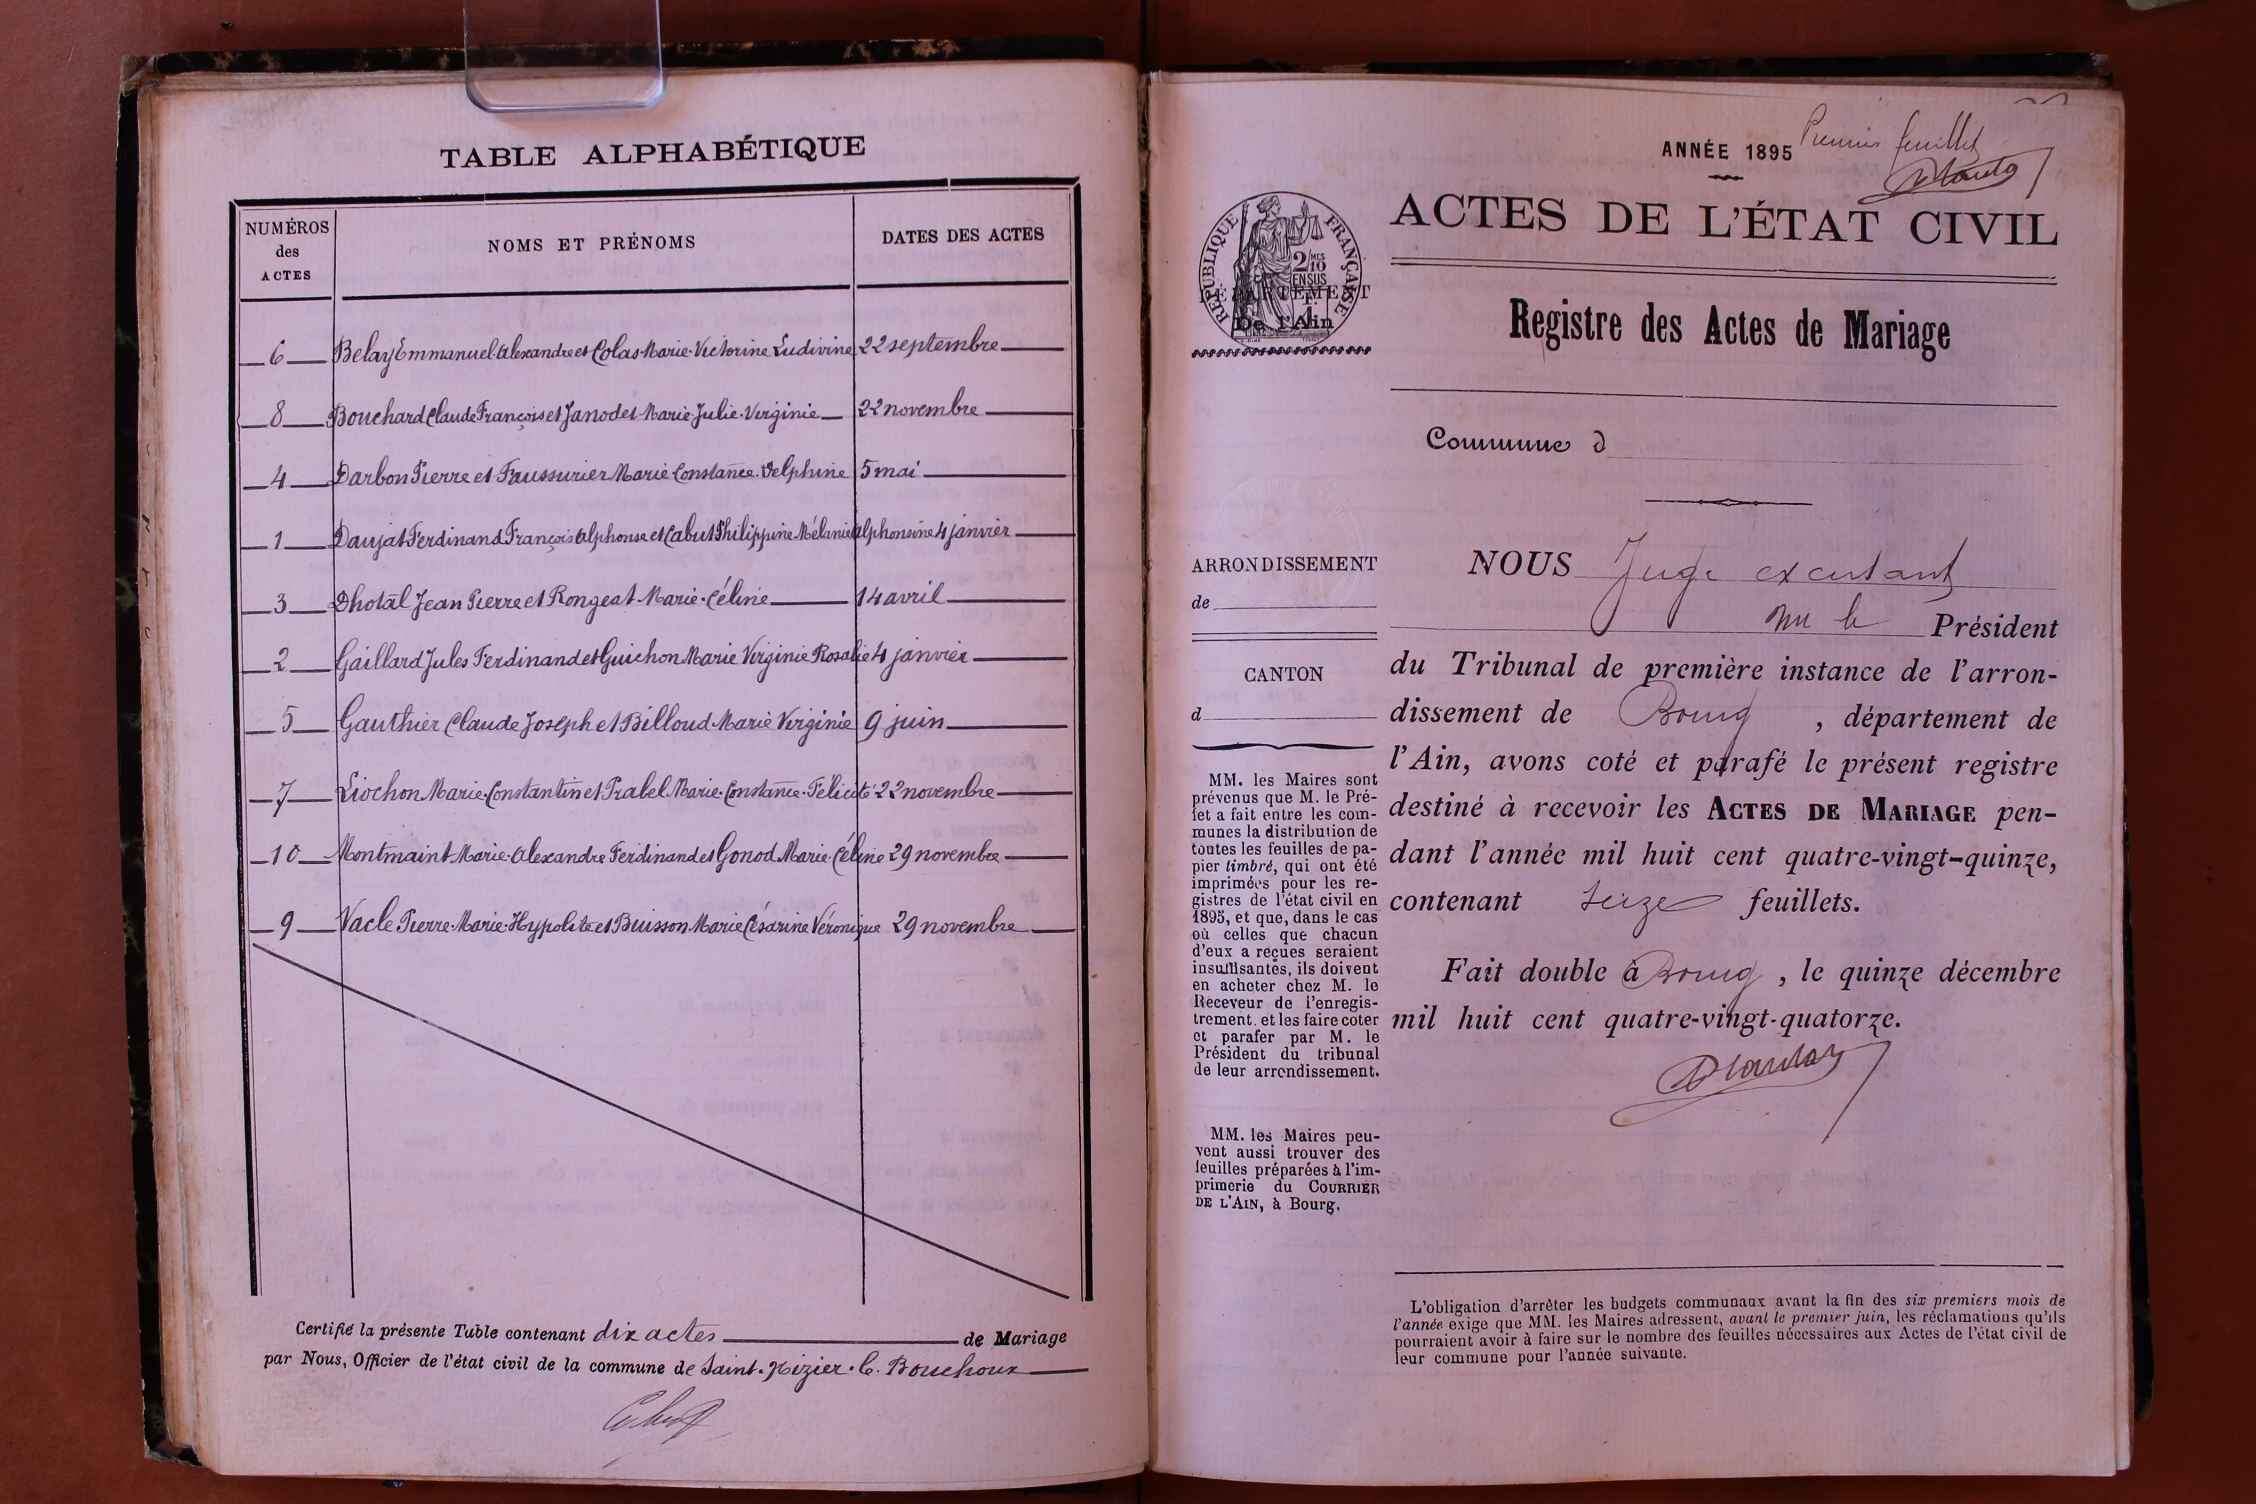 TABLE ALPHABÉTIQUE
NUMÉROS
des
ACTES
NOMS ET PRÉNOMS
DATES DES ACTES
6 Belay Emmanuel Alexandre et Colas Marie Victorine Ludivine 22 septembre
8 Bouchard Claude François et Janodet Marie Julie Virginie 22 novembre
4 Darbon Pierre et Faussurier Marie Constance Delphine 5 mai
1 Daujat Ferdinand François Alphonse et Cabut Philippine Mélanie Alphonsine 4 janvier
3 Dhotal Jean Pierre et Rongeat Marie Céline 14 avril
2 Gaillard Jules Ferdinand et Guichon Marie Virginie Rosalie 4 janvier
5 Gauthier Claude Joseph et Billoud Marie Virginie 9 juin
7 Liochon Marie Constantin et Prabel Marie Constance Félicité 22 novembre
10 Montmaint Marie Alexandre Ferdinand et Gonod Marie Céline 29 novembre
9 Vacle Pierre Marie Hypolite et Buisson Marie Césarine Véronique 29 novembre
Certifié la présente Table contenant dix actes de Mariage
par Nous, Officier de l'état civil de la commune de Saint-Nizier-le-Bouchoux
ANNÉE 1895
Premier feuillet
RÉPUBLIQUE FRANÇAISE
2 MES
10
EN SUS
DÉPARTEMENT
De l'Ain
ACTES DE L'ÉTAT CIVIL
Registre des Actes de Mariage
Commune d
ARRONDISSEMENT
de
CANTON
d
MM. les Maires sont
prévenus que M. le Pré-
fet a fait entre les com-
munes la distribution de
toutes les feuilles de pa-
pier timbré, qui ont été
imprimées pour les re-
gistres de l'état civil en
1895, et que, dans le cas
où celles que chacun
d'eux a reçues seraient
insuffisantes, ils doivent
en acheter chez M. le
Receveur de l'enregis-
trement, et les faire coter
et parafer par M. le
Président du tribunal
de leur arrondissement.
MM. les Maires peu-
vent aussi trouver des
feuilles préparées à l'im-
primerie du COURRIER
DE L'AIN, à Bourg.
NOUS Juge
Président
du Tribunal de première instance de l'arron-
dissement de Bourg, département de
l'Ain, avons coté et parafé le présent registre
destiné à recevoir les ACTES DE MARIAGE pen-
dant l'année mil huit cent quatre-vingt-quinze,
contenant seize feuillets.
Fait double à Bourg, le quinze décembre
mil huit cent quatre-vingt-quatorze.
L'obligation d'arrêter les budgets communaux avant la fin des six premiers mois de
l'année exige que MM. les Maires adressent, avant le premier juin, les réclamations qu'ils
pourraient avoir à faire sur le nombre des feuilles nécessaires aux Actes de l'état civil de
leur commune pour l'année suivante.